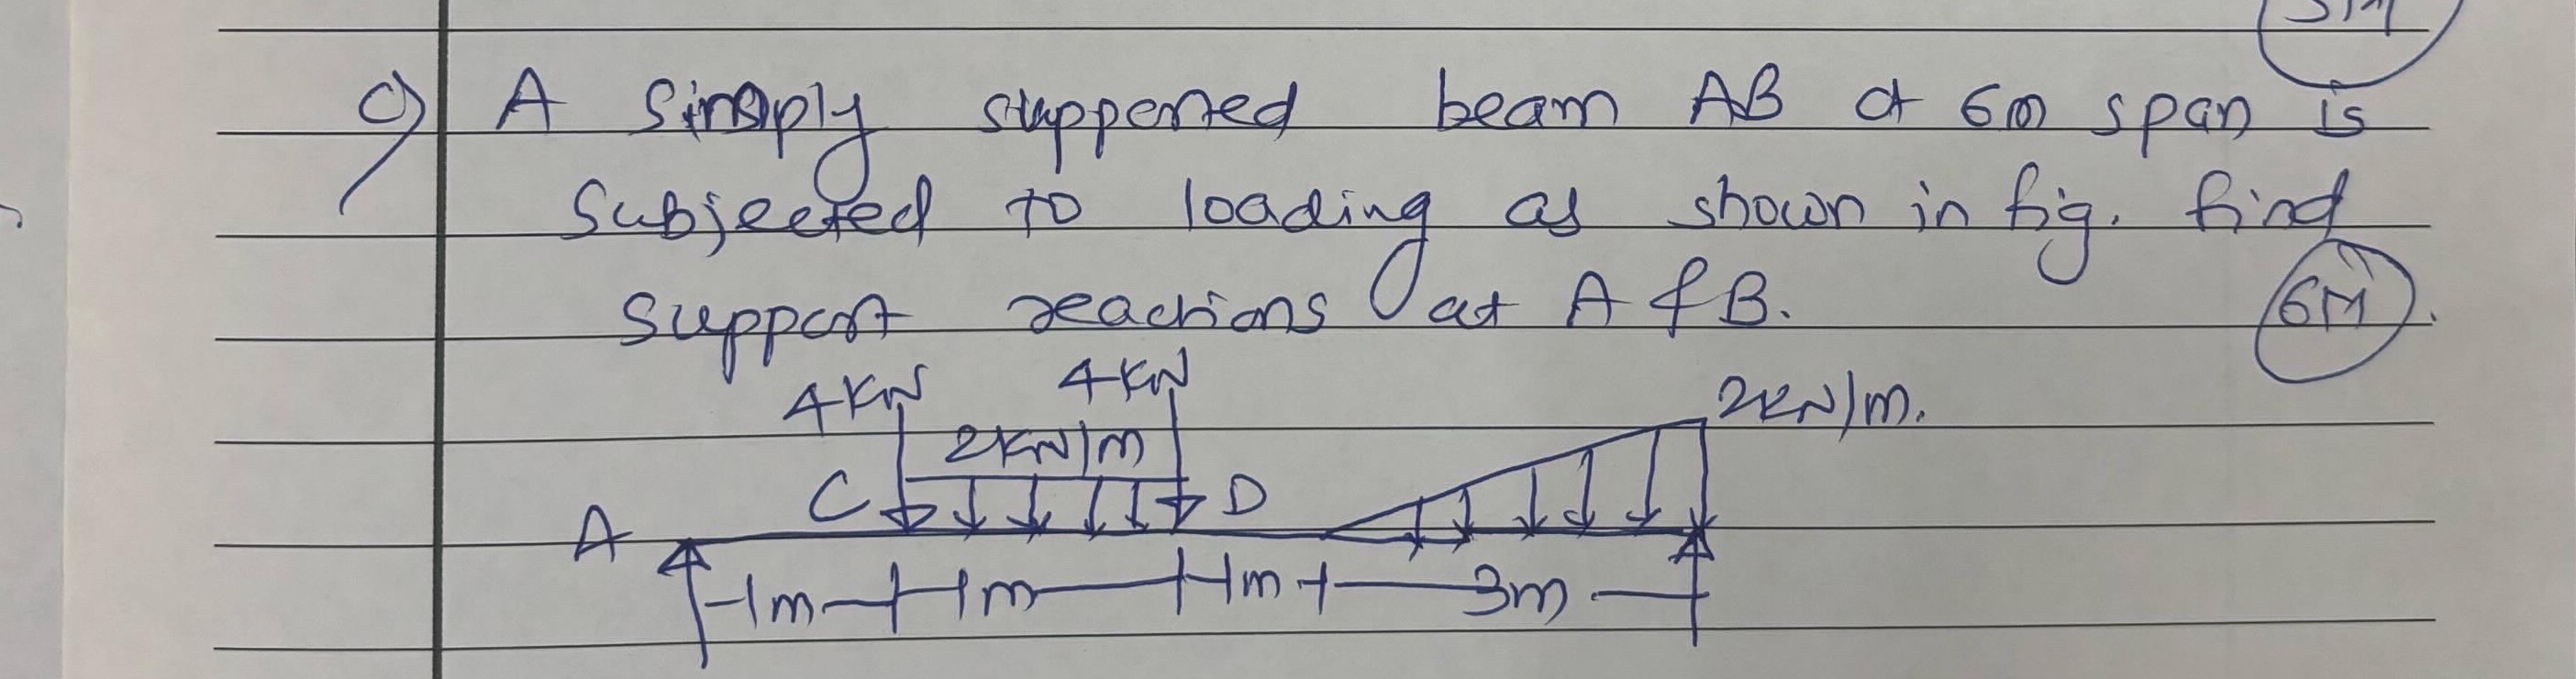 c) A Simply supported beam AB of 6m span is
Subjected to loading as shown in fig. find
support reactions at A & B.
6M
4KN 4KN 2KN/m.
2KN/m
C D
A
1m 1m 1m 3m